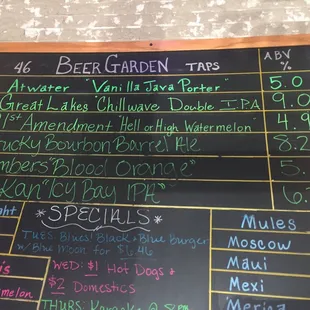 46 BEER GARDEN TAPS
ABV %
Atwater "Vanilla Java Porter" 5.0
Great Lakes Chillwave Double IPA 9.0
1st Amendment "Hell or High Watermelon" 4.9
ucky Bourbon Barrel Ale 8.2
mbers "Blood Orange" 5.
Kan "Icy Bay IPA" 6.
*SPECIALS*
TUES: Blues' Black & Blue Burger
w/ Blue Moon for $6.46
WED: $1 Hot Dogs &
$2 Domestics
THURS: Karaoke @ 8pm
Mules
Moscow
Maui
Mexi